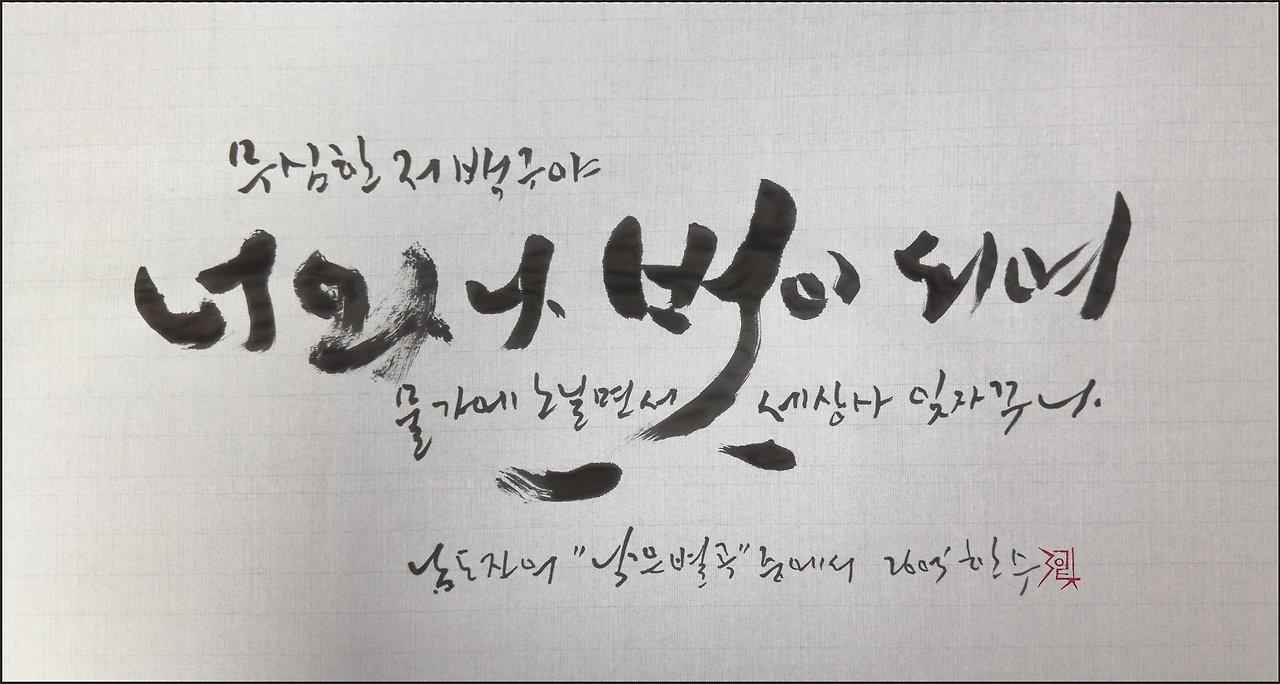 무심한 저 백구야
너와 나 벗이 되며
물가에 노닐면서 세상사 잊자꾸나.
남도진의 "낙은별곡" 중에서